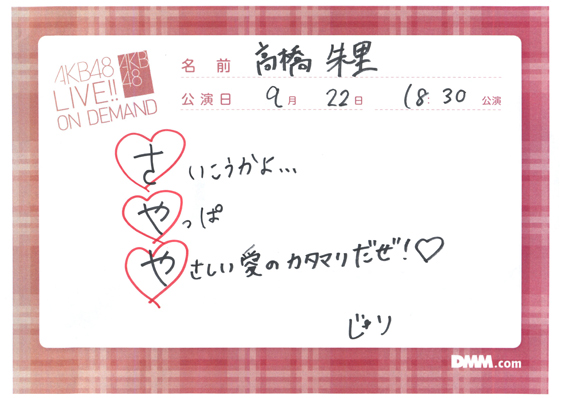 AKB48
LIVE!!
ON DEMAND
AKB
48
名前 高橋 朱里
公演日 9月 22日 18:30 公演
さいこうかよ...
やっぱ
やさしい愛のカタマリだぜ!♡
じゅり
DMM.com